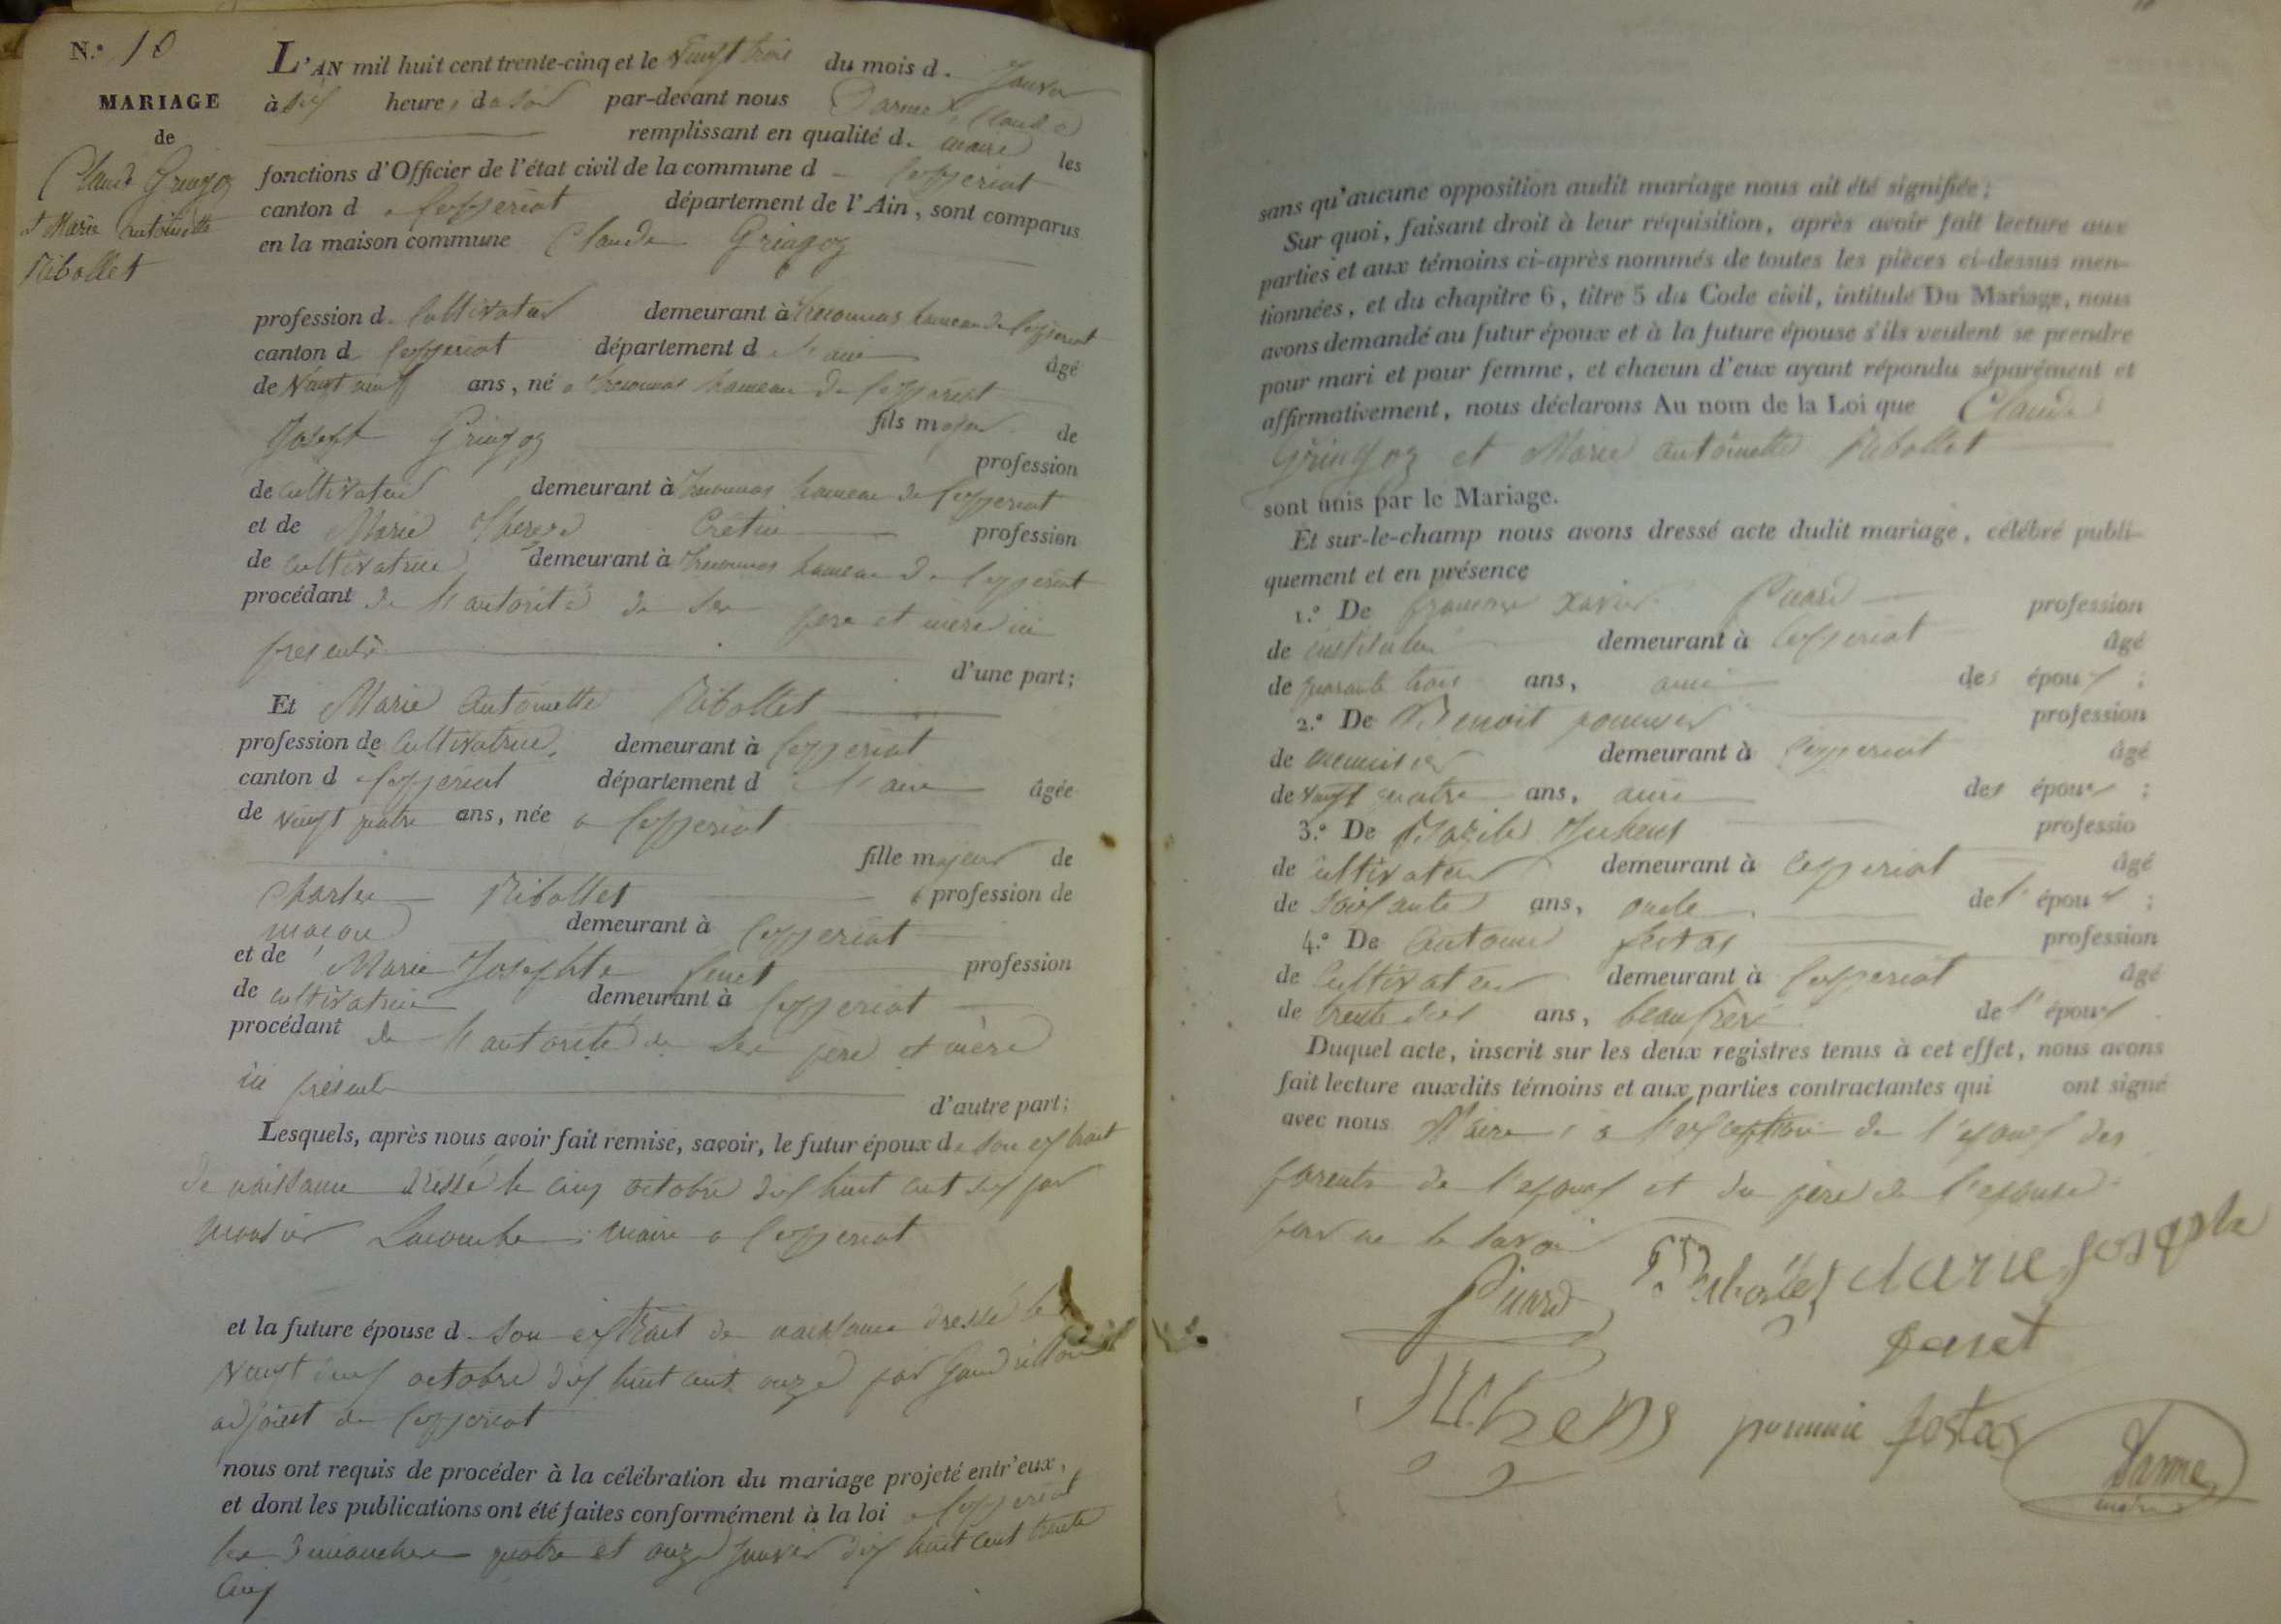 N.º 10
MARIAGE
de
Claude Gringoz
et Marie Antoinette
Ribollet
L'AN mil huit cent trente-cinq et le vingt trois du mois d. Janvier
à six heures du soir par-devant nous Darme Claude
remplissant en qualité d. maire les
fonctions d'Officier de l'état civil de la commune d Ceyzeriat
canton d Ceyzeriat département de l'Ain, sont comparus
en la maison commune Claude Gringoz
profession d. Cultivateur demeurant à hameau de Ceyzeriat
canton de Ceyzeriat département d l'ain âgé
de vingt neuf ans, né a hameau de Ceyzeriat
fils majeur de
Joseph Gringoz profession
de cultivateur demeurant à hameau de Ceyzeriat
et de Marie Therese Cretin profession
de cultivatrice demeurant à hameau de Ceyzeriat
procédant de l'autorité de ses père et mère ici
présents d'une part;
Et Marie Antoinette Ribollet
profession de Cultivatrice demeurant à Ceyzeriat
canton d Ceyzeriat département d l'ain âgée
de vingt quatre ans, née a Ceyzeriat
fille majeure de
Charles Ribollet profession de
maçon demeurant à Ceyzeriat
et de Marie Josephte profession
de cultivatrice demeurant à Ceyzeriat
procédant de l'autorité de ses père et mère
ici présents d'autre part;
Lesquels, après nous avoir fait remise, savoir, le futur époux de son extrait
de naissance dressé le cinq octobre dix huit cent six par
monsieur Lacombe maire a Ceyzeriat
et la future épouse d. son extrait de naissance dressé le
vingt neuf octobre dix huit cent onze par
adjoint de Ceyzeriat
nous ont requis de procéder à la célébration du mariage projeté entr'eux,
et dont les publications ont été faites conformément à la loi a Ceyzeriat
les dimanches quatre et onze janvier dix huit cent trente
cinq
sans qu'aucune opposition audit mariage nous ait été signifiée;
Sur quoi, faisant droit à leur réquisition, après avoir fait lecture aux
parties et aux témoins ci-après nommés de toutes les pièces ci-dessus men-
tionnées, et du chapitre 6, titre 5 du Code civil, intitulé Du Mariage, nous
avons demandé au futur époux et à la future épouse s'ils veulent se prendre
pour mari et pour femme, et chacun d'eux ayant répondu séparément et
affirmativement, nous déclarons Au nom de la Loi que Claude
Gringoz et Marie antoinette Ribollet
sont unis par le Mariage.
Et sur-le-champ nous avons dressé acte dudit mariage, célébré publi-
quement et en présence
1.º De françois xavier Picard profession
de instituteur demeurant à Ceyzeriat âgé
de quarante trois ans, ami des époux;
2.º De Benoit profession
de menuisier demeurant à Ceyzeriat âgé
de vingt quatre ans, ami des époux;
3.º De Bazile Juhens professio
de cultivateur demeurant à Ceyzeriat âgé
de soixante ans, oncle de l'époux;
4.º De Antoine profession
de Cultivateur demeurant à Ceyzeriat âgé
de trente six ans, beau frère de l'époux
Duquel acte, inscrit sur les deux registres tenus à cet effet, nous avons
fait lecture auxdits témoins et aux parties contractantes qui ont signé
avec nous Maire, a l'exception de l'époux des
parents de l'époux et du père de l'épouse
pour ne le savoir
Picard Ribollet Marie Josephte
Juhens Darme
maire